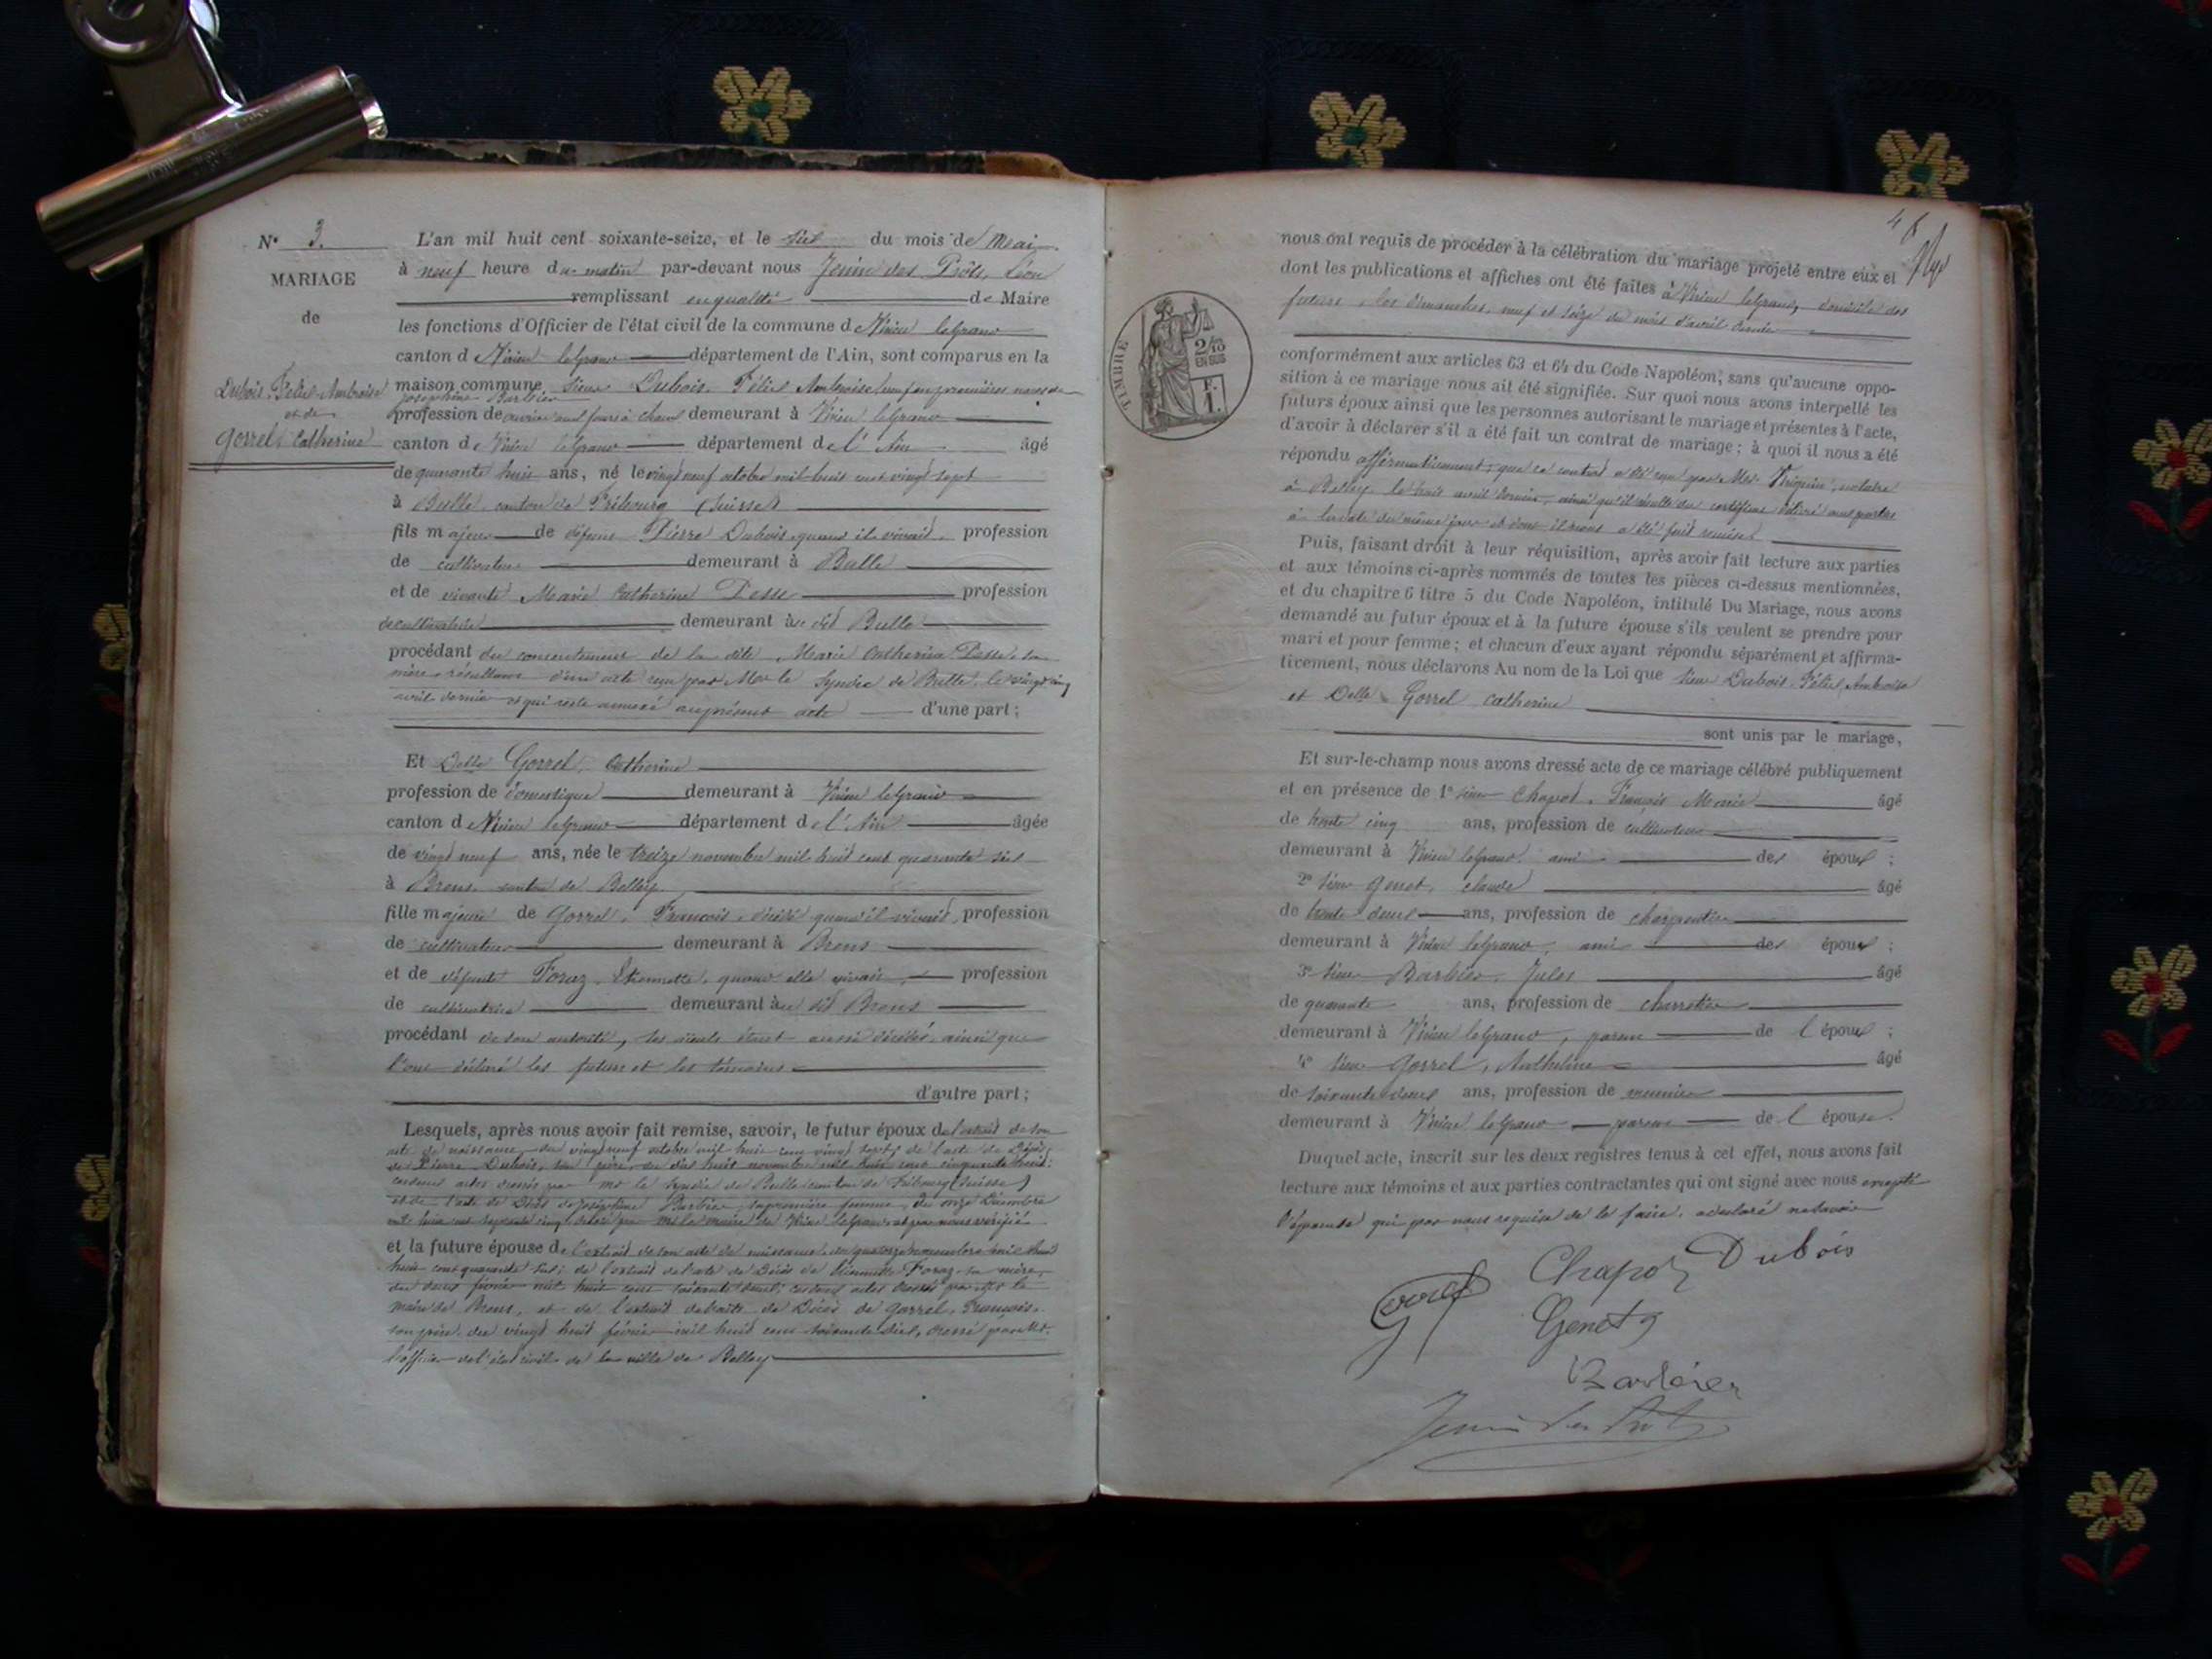 N° 3.
MARIAGE
de
Dubois, Félix Ambroise
et de
Gorrel Catherine
L'an mil huit cent soixante-seize, et le six du mois de Mai
à neuf heure du matin par-devant nous Jenin des Prôts, Léon
remplissant en qualité de Maire
les fonctions d'Officier de l'état civil de la commune de Virieu leGrand
canton de Virieu leGrand département de l'Ain, sont comparus en la
maison commune, sieur Dubois, Félix Ambroise, veuf en premières noces de
Joséphine Barbier
profession de ouvrier aux fours à chaux demeurant à Virieu leGrand
canton de Virieu leGrand département de l'Ain âgé
de quarante huit ans, né le vingt neuf octobre mil huit cent vingt sept
à Bulle, canton de Fribourg (Suisse)
fils majeur de défunt Pierre Dubois, quand il vivait, profession
de cultivateur demeurant à Bulle
et de vivante Marie Catherine Desse profession
de cultivatrice demeurant au dit Bulle
procédant du consentement de la dite Marie Catherine Desse, sa
mère, résultant d'un acte reçu par Mr le Syndic de Bulle, le vingt cinq
avril dernier et qui reste annexé au présent acte d'une part ;
Et Delle Gorrel, Catherine
profession de domestique demeurant à Virieu leGrand
canton de Virieu leGrand département de l'Ain âgée
de vingt neuf ans, née le treize novembre mil huit cent quarante six
à Brens, canton de Belley
fille majeure de Gorrel, François, décédé quand il vivait, profession
de cultivateur demeurant à Brens
et de défunte Foraz, Etiennette, quand elle vivait, profession
de cultivatrice demeurant au dit Brens
procédant de son autorité, ses aïeuls étant aussi décédés, ainsi que
l'ont déclaré les futurs et les témoins
d'autre part ;
Lesquels, après nous avoir fait remise, savoir, le futur époux de l'extrait de son
acte de naissance, du vingt neuf octobre mil huit cent vingt sept; de l'acte de Décès
de Pierre Dubois, son père, du dix huit novembre mil huit cent cinquante huit;
ces deux actes dressés par Mr le Syndic de Bulle canton de Fribourg (Suisse)
et de l'acte de Décès de Joséphine Barbier, sa première femme, du onze Décembre
mil huit cent soixante cinq, dressé par Mr le maire de Virieu leGrand et par nous vérifié
et la future épouse de l'extrait de son acte de naissance, du quatorze novembre mil huit
huit cent quarante six; de l'extrait de l'acte de Décès de Etiennette Foraz sa mère,
du deux février mil huit cent soixante deux, ces deux actes dressés par Mr le
maire de Brens, et de l'extrait de l'acte de Décès de Gorrel, François,
son père, du vingt huit février mil huit cent soixante dix, dressé par Mr
l'officier de l'état civil de la ville de Belley
46
nous ont requis de procéder à la célébration du mariage projeté entre eux et
dont les publications et affiches ont été faites à Virieu leGrand, domicile des
futurs, les dimanches, neuf et seize du mois d'avril dernier
TIMBRE
2/10
EN SUS
F.
1.
conformément aux articles 63 et 64 du Code Napoléon, sans qu'aucune oppo-
sition à ce mariage nous ait été signifiée. Sur quoi nous avons interpellé les
futurs époux ainsi que les personnes autorisant le mariage et présentes à l'acte,
d'avoir à déclarer s'il a été fait un contrat de mariage ; à quoi il nous a été
répondu affirmativement; que ce contrat a été reçu par Me notaire
à Belley, le huit avril dernier, ainsi qu'il résulte du certificat délivré aux parties
à la date du même jour et dont il nous a été fait remise
Puis, faisant droit à leur réquisition, après avoir fait lecture aux parties
et aux témoins ci-après nommés de toutes les pièces ci-dessus mentionnées,
et du chapitre 6 titre 5 du Code Napoléon, intitulé Du Mariage, nous avons
demandé au futur époux et à la future épouse s'ils veulent se prendre pour
mari et pour femme ; et chacun d'eux ayant répondu séparément et affirma-
tivement, nous déclarons Au nom de la Loi que sieur Dubois, Félix, Ambroise
et Delle Gorrel Catherine
sont unis par le mariage,
Et sur-le-champ nous avons dressé acte de ce mariage célébré publiquement
et en présence de 1° sieur Chapot, François Marie âgé
de trente cinq ans, profession de cultivateur
demeurant à Virieu leGrand, ami des époux ;
2° sieur Genet, Claude âgé
de trente deux ans, profession de charpentier
demeurant à Virieu leGrand, ami des époux ;
3° sieur Barbier, Jules âgé
de quarante ans, profession de charretier
demeurant à Virieu leGrand, parent de l'époux ;
4° sieur Gorrel, Anthelme âgé
de soixante deux ans, profession de meunier
demeurant à Virieu leGrand parent de l'épouse.
Duquel acte, inscrit sur les deux registres tenus à cet effet, nous avons fait
lecture aux témoins et aux parties contractantes qui ont signé avec nous excepté
l'épouse qui par nous requise de le faire, a déclaré ne savoir
Chapot Dubois
Gorrel
Genet
Barbier
Jenin des Prots